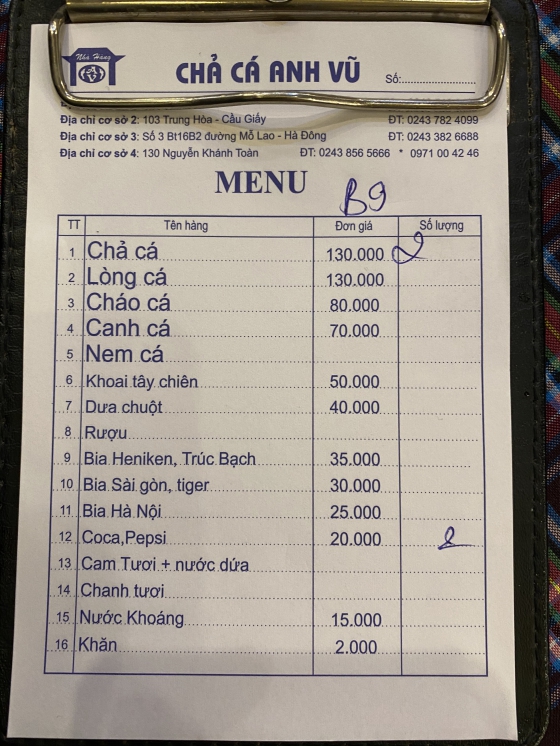 Nhà Hàng
CHẢ CÁ ANH VŨ Số:
Địa chỉ cơ sở 2: 103 Trung Hòa - Cầu Giấy ĐT: 0243 782 4099
Địa chỉ cơ sở 3: Số 3 Bt16B2 đường Mỗ Lao - Hà Đông ĐT: 0243 382 6688
Địa chỉ cơ sở 4: 130 Nguyễn Khánh Toàn ĐT: 0243 856 5666 * 0971 00 42 46
MENU B9
TT Tên hàng Đơn giá Số lượng
1 Chả cá 130.000 2
2 Lòng cá 130.000
3 Cháo cá 80.000
4 Canh cá 70.000
5 Nem cá
6 Khoai tây chiên 50.000
7 Dưa chuột 40.000
8 Rượu
9 Bia Heniken, Trúc Bạch 35.000
10 Bia Sài gòn, tiger 30.000
11 Bia Hà Nội 25.000
12 Coca,Pepsi 20.000 2
13 Cam Tươi + nước dứa
14 Chanh tươi
15 Nước Khoáng 15.000
16 Khăn 2.000